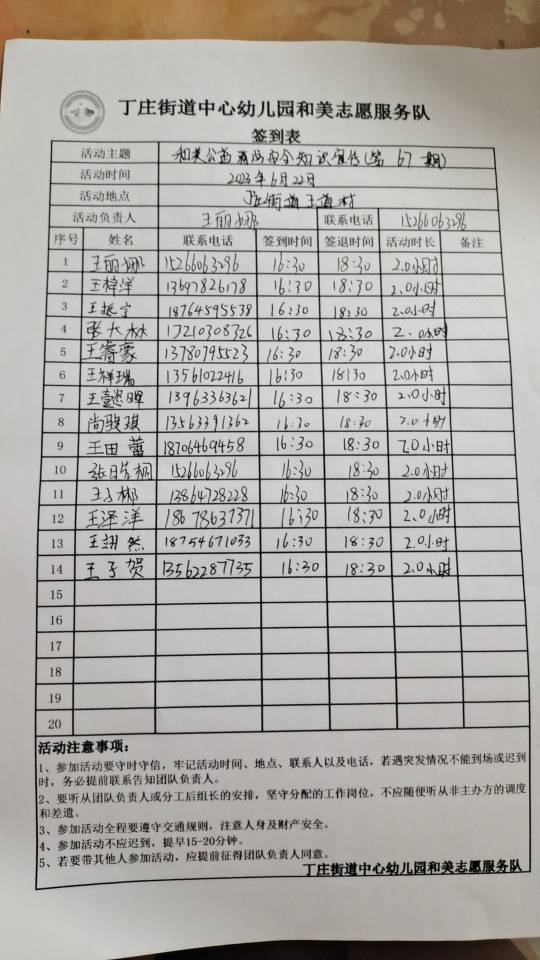 丁庄街道中心幼儿园和美志愿服务队
签到表
活动主题 和美公益 安全知识宣传(第 67 期)
活动时间 2023年6月22日
活动地点 丁庄街道王道村
活动负责人 王丽娜 联系电话 15266063296
序号 姓名 联系电话 签到时间 签退时间 活动时长 备注
1 王丽娜 15266063296 16:30 18:30 2.0小时
2 王梓洋 13697826178 16:30 18:30 2.0小时
3 王振宇 18764595538 16:30 18:30 2.0小时
4 张大林 17210308326 16:30 18:30 2.0小时
5 王睿豪 13780795523 16:30 18:30 2.0小时
6 王祥瑞 13561022416 16:30 18:30 2.0小时
7 王懿 13963363621 16:30 18:30 2.0小时
8 尚骏琪 13563391362 16:30 18:30 2.0小时
9 王田蕾 18706469458 16:30 18:30 2.0小时
10 张皓桐 15266063296 16:30 18:30 2.0小时
11 王子彬 13864728228 16:30 18:30 2.0小时
12 王泽洋 18678637371 16:30 18:30 2.0小时
13 王翊然 18754671033 16:30 18:30 2.0小时
14 王子贺 13562287735 16:30 18:30 2.0小时
15
16
17
18
19
20
活动注意事项:
1、参加活动要守时守信,牢记活动时间、地点、联系人以及电话,若遇突发情况不能到场或迟到
时,务必提前联系告知团队负责人。
2、要听从团队负责人或分工后组长的安排,坚守分配的工作岗位,不应随便听从非主办方的调度
和差遣。
3、参加活动全程要遵守交通规则,注意人身及财产安全。
4、参加活动不应迟到,提早15-20分钟。
5、若要带其他人参加活动,应提前征得团队负责人同意。
丁庄街道中心幼儿园和美志愿服务队